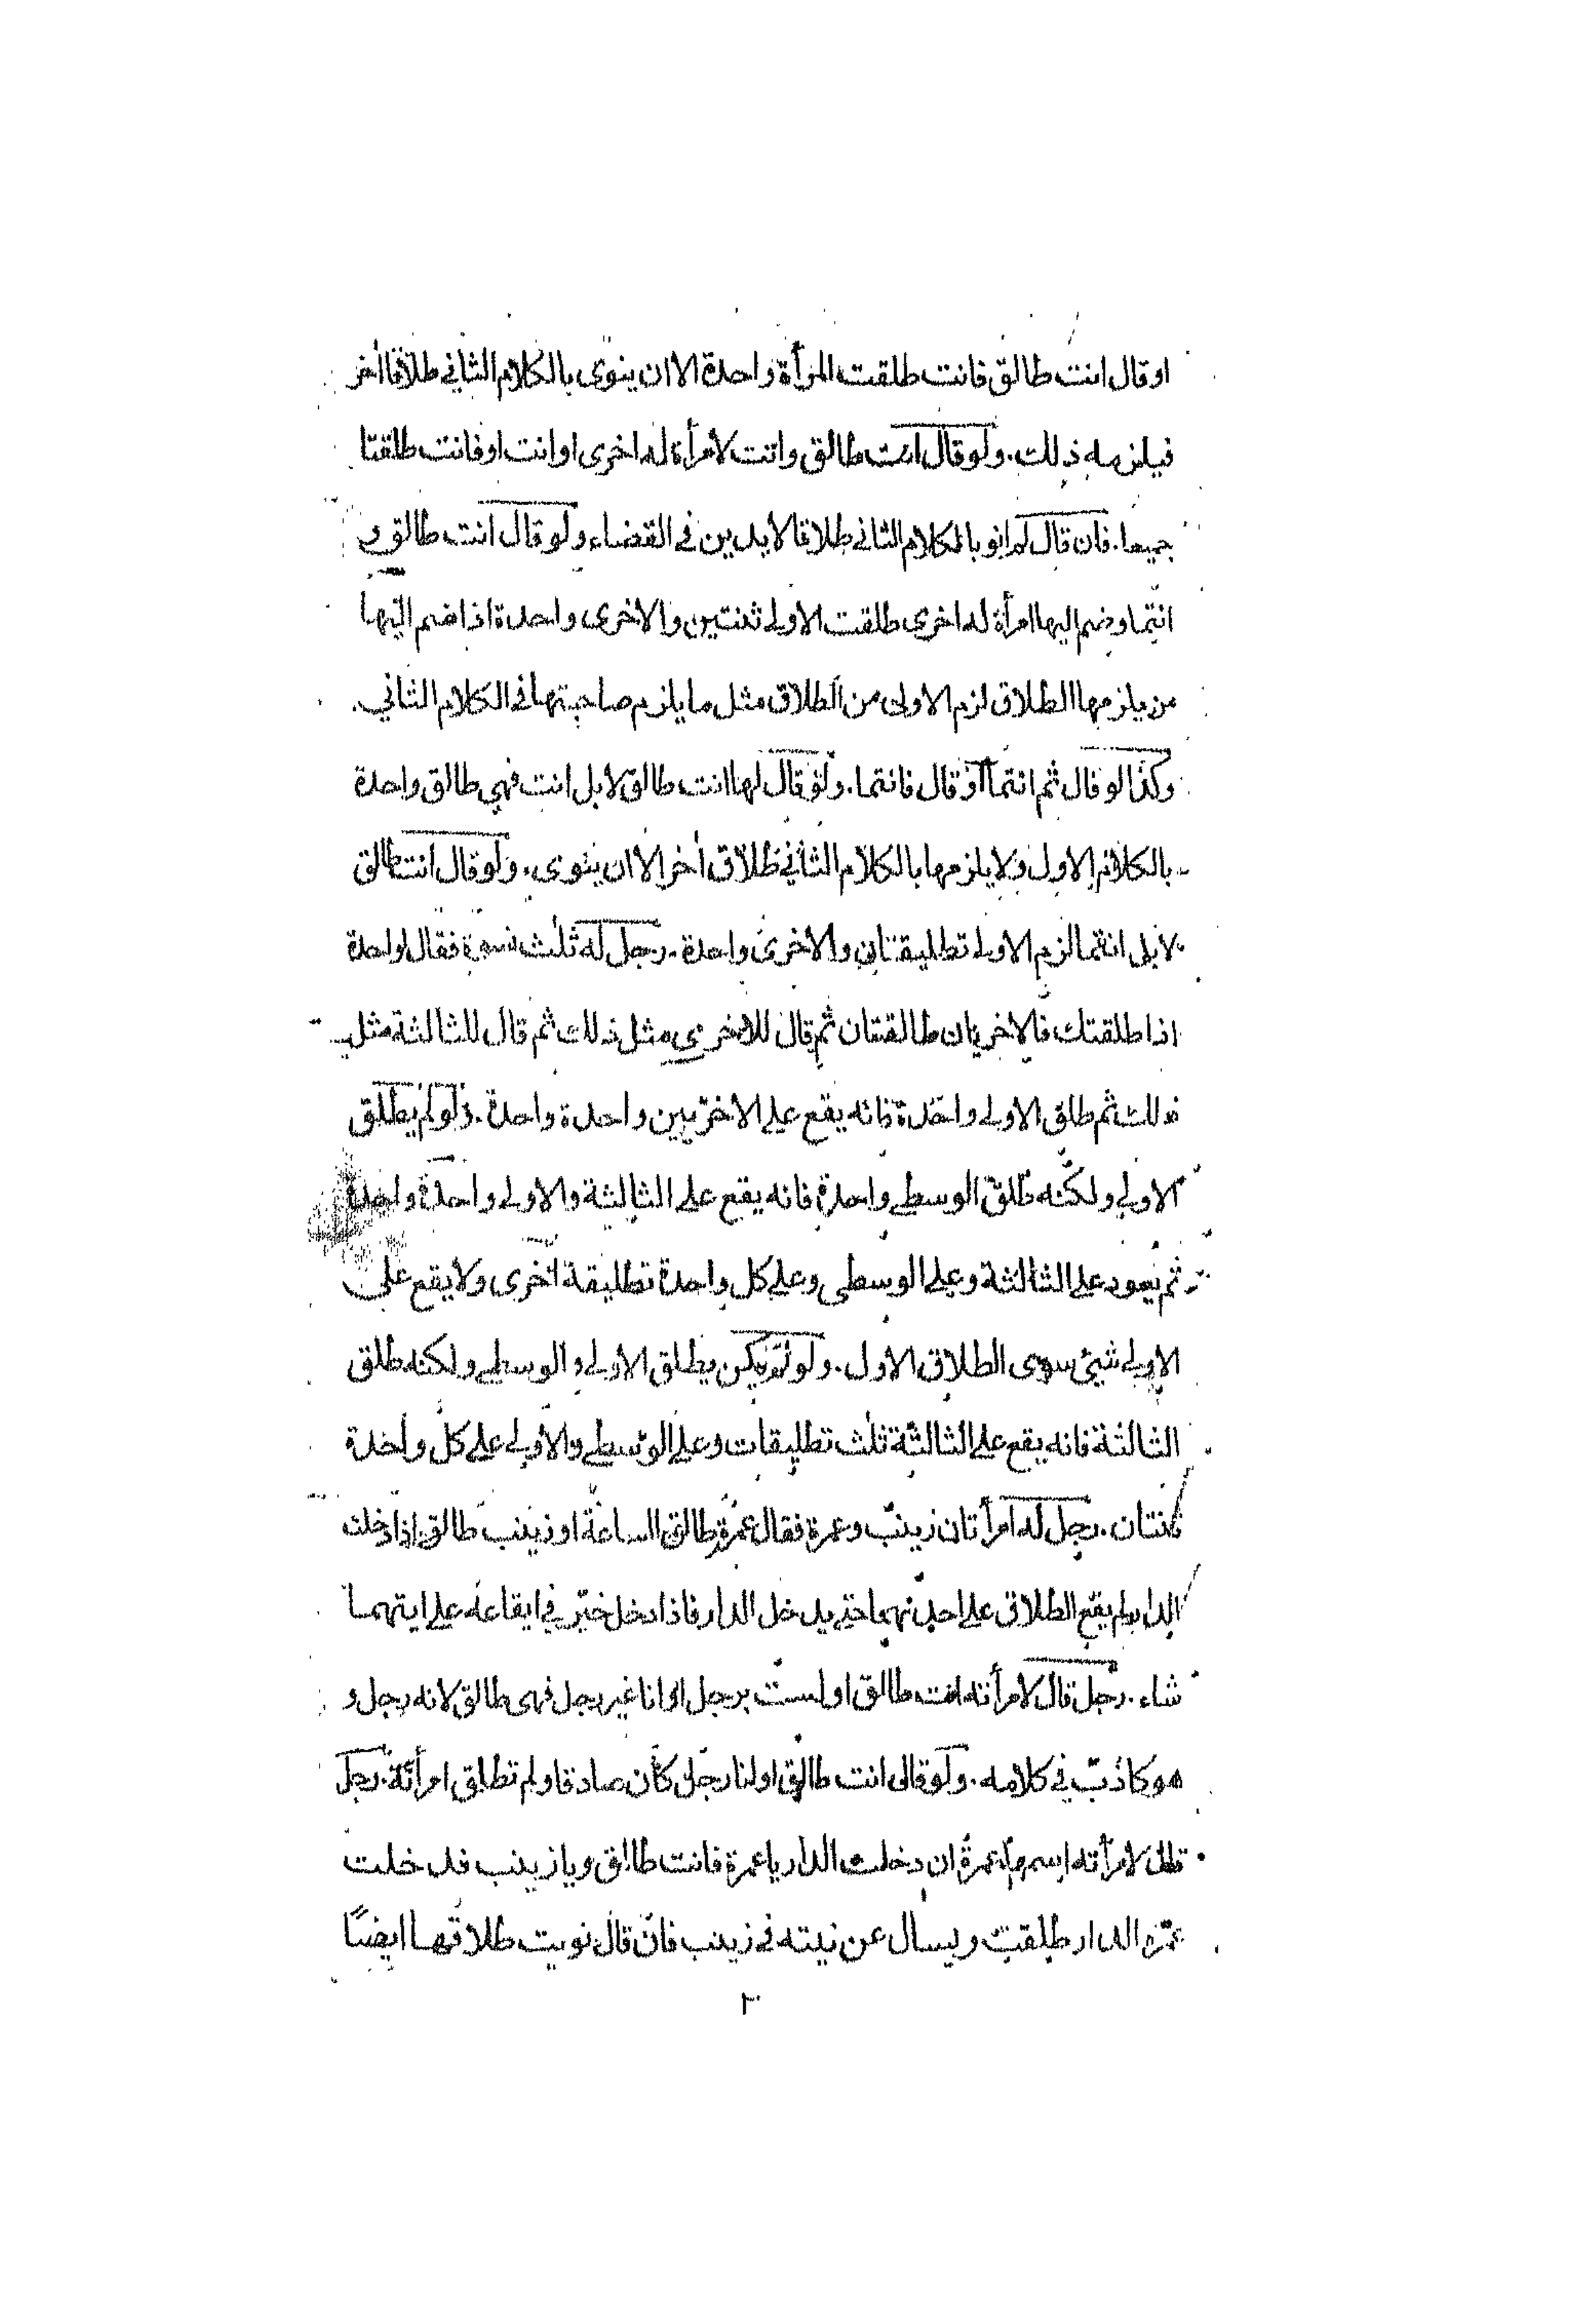 اوقال انت طالق فانت طلقت المرأة واحدة الا ان ينوى بالكلام الثاني طلاقا اٰخر
فيلزمه ذلك. ولو قال انت طالق وانت لامرأة له اخرى او انت او فانت طلقتا
جميعا. فان قال لم انو بالكلام الثاني طلاقا لا يدين في القضاء ولو قال انت طالق و
انتما وضم اليها امرأة له اخرى طلقت الاولى ثنتين والاخرى واحدة اذا ضم اليها
من يلزمها الطلاق لزم الاولى من الطلاق مثل ما يلزم صاحبتها في الكلام الثاني.
وكذا لو قال ثم انتما او قال فانتما. ولو قال لها انت طالق لا بل انت فهي طالق واحدة
بالكلام الاول ولا يلزمها بالكلام الثاني طلاق اٰخر الا ان ينوى. ولو قال انت طالق
لا بل انتما لزم الاولى تطليقتان والاخرى واحدة. رجل له ثلٰث نسوة فقال لواحدة
اذا طلقتك فالاخريان طالقتان ثم قال للاخرى مثل ذلك ثم قال للثالثة مثل
ذلك ثم طلق الاولى واحدة فانه يقع على الاخريين واحدة واحدة. ولو لم يطلق
الاولى ولكنه طلق الوسطى واحدة فانه يقع على الثالثة والاولى واحدة واحدة
ثم يعود على الثالثة وعلى الوسطى وعلى كل واحدة تطليقة اخرى ولا يقع على
الاولى شيئ سوى الطلاق الاول. ولو لم يكن يطلق الاولى و الوسطى ولكنه طلق
الثالثة فانه يقع على الثالثة ثلٰث تطليقات وعلى الوسطى والاولى على كل واحدة
ثنتان. رجل له امرأتان زينب وعمرة فقال عمرة طالق الساعة او زينب طالق اذا دخلت
الدار لم يقع الطلاق على احدٰهما حتى يدخل الدار فاذا دخل خيّر في ايقاعه على ايتهما
شاء. رجل قال لامرأته انت طالق او لست برجل او انا غير رجل فهى طالق لانه رجل و
هو كاذب في كلامه. ولو قال انت طالق او انا رجل كان صادقا ولم تطلق امرأته. رجل
قال لامرأته اسمها عمرة ان دخلت الدار يا عمرة فانت طالق ويا زينب فدخلت
عمرة الدار طلقت ويسال عن نيته في زينب فان قال نويت طلاقها ايضًا
٢